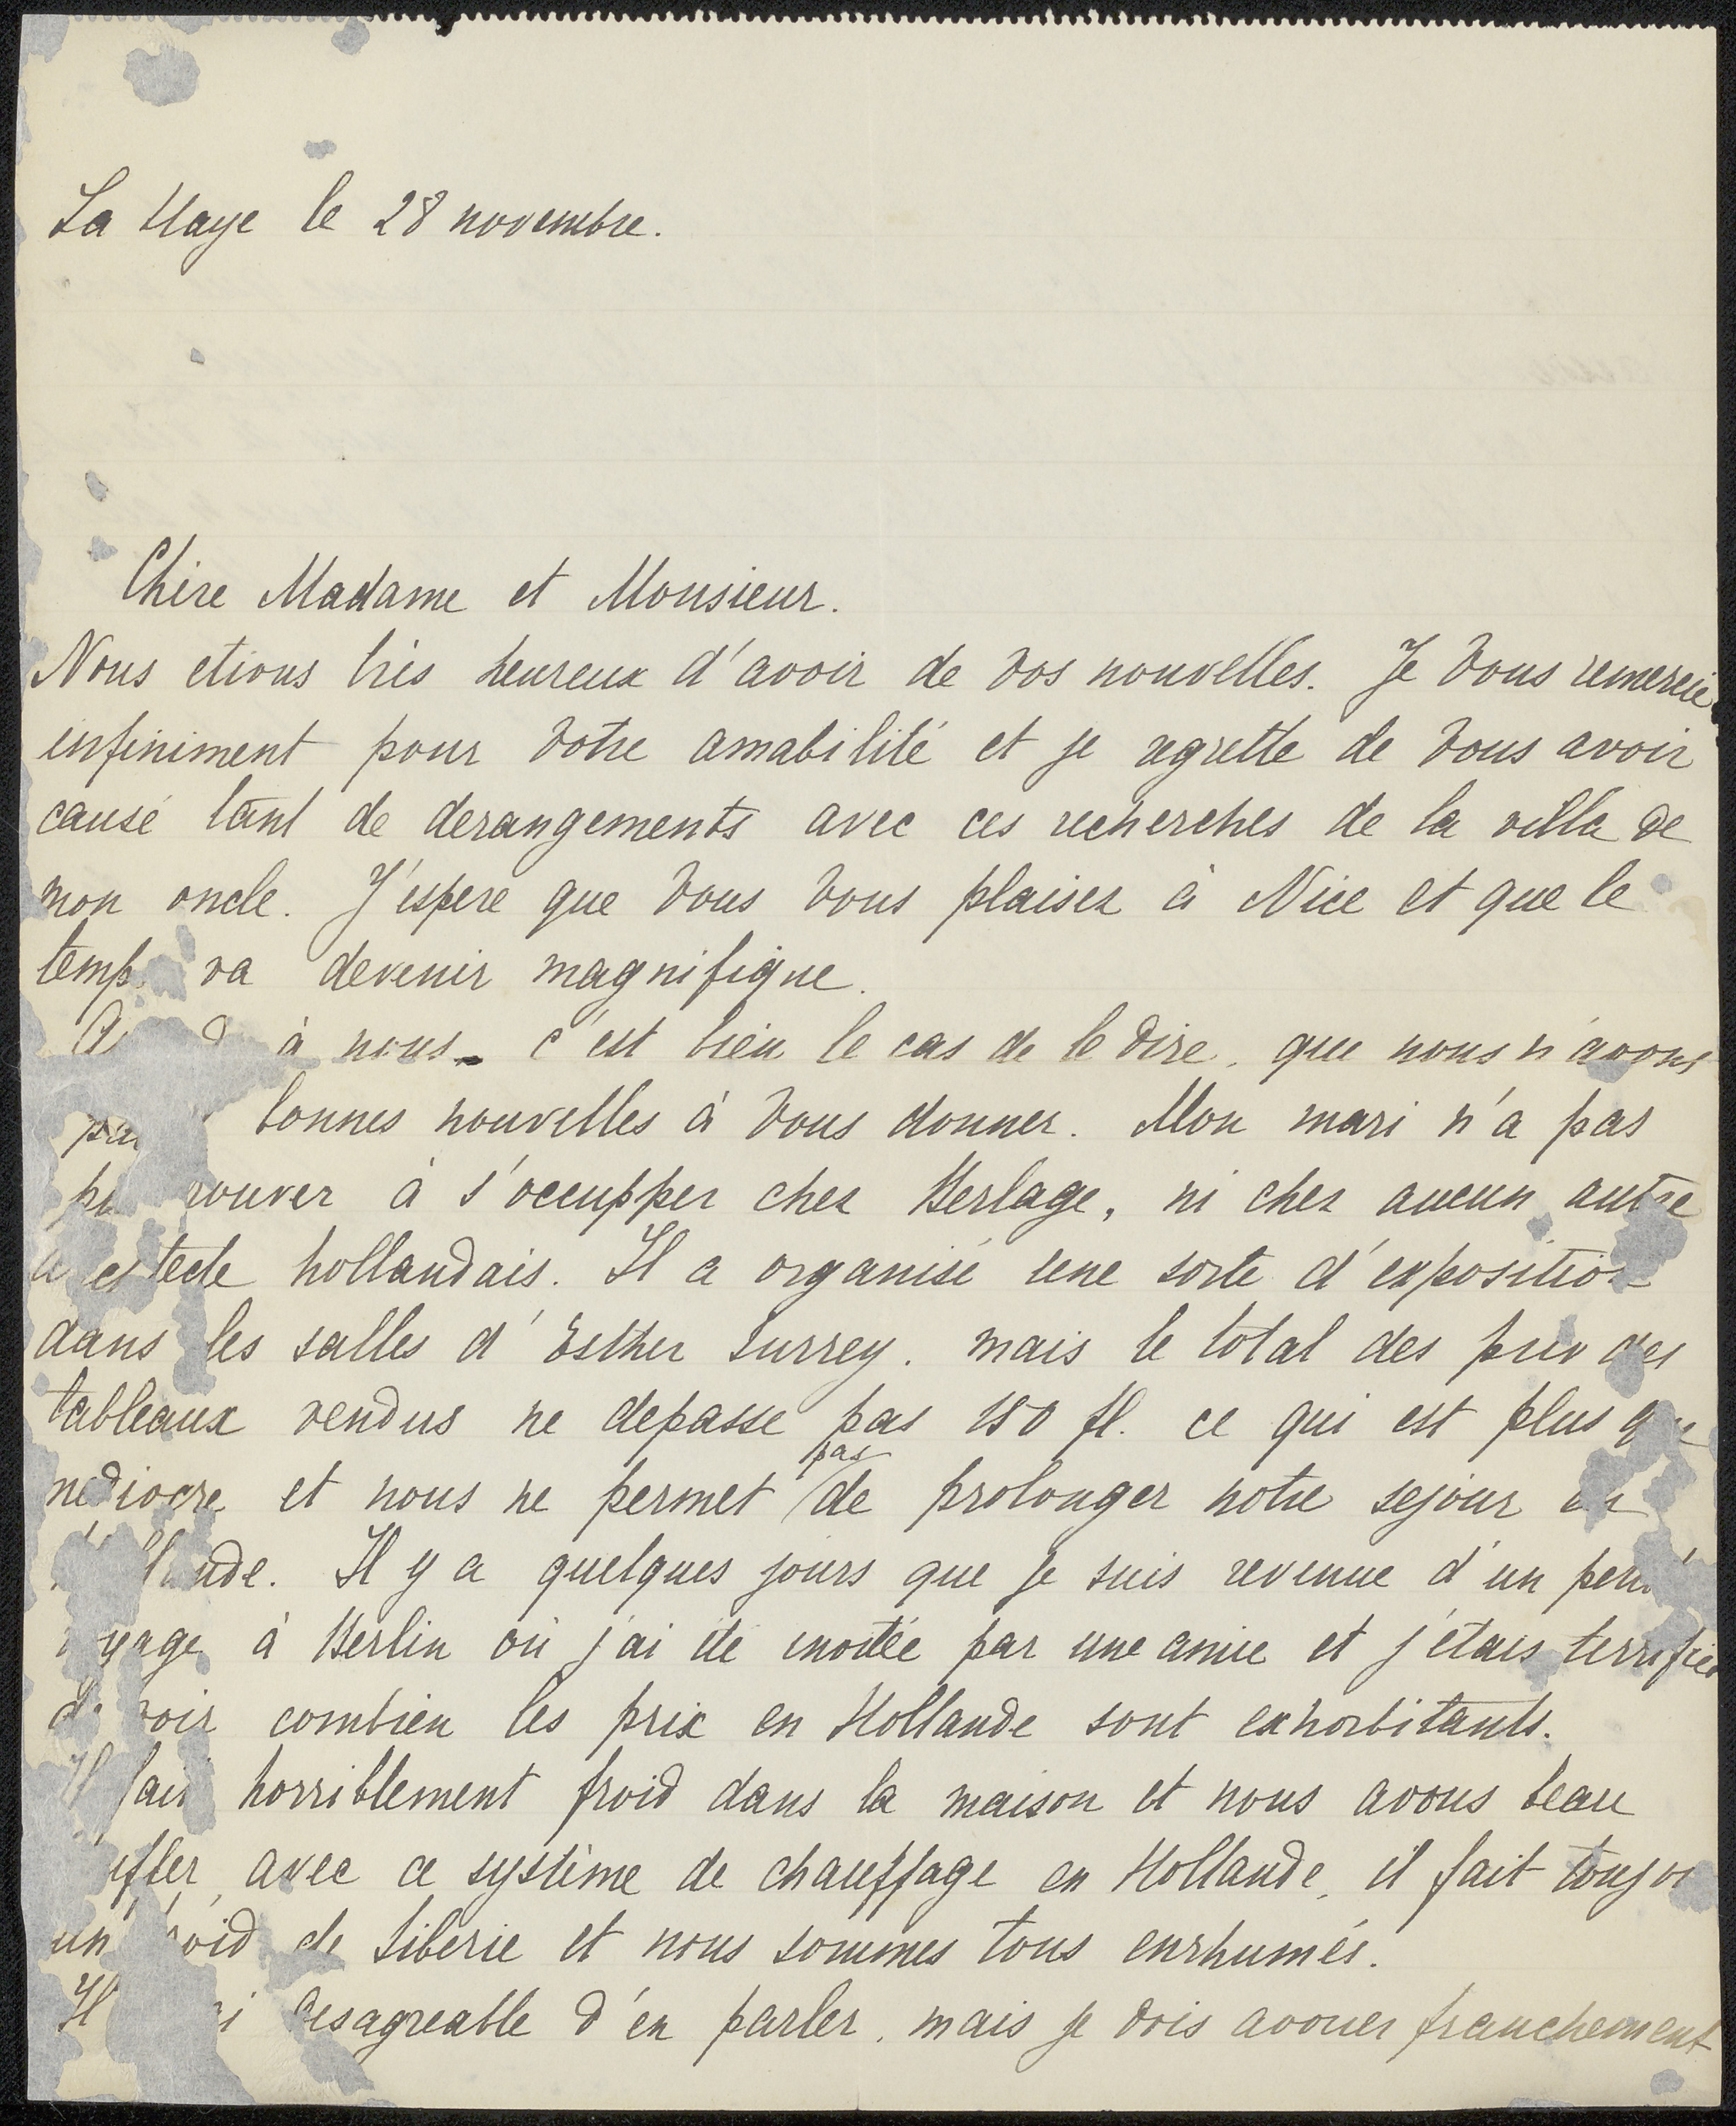 La Haye le 28 novembre.
Chère Madame et Monsieur.
Nous etions très heureux d'avoir de vos nouvelles. Je vous remercie
infiniment pour votre amabilité et je regrette de vous avoir
causé tant de derangements avec ces recherches de la villa de
mon oncle. J'espere que vous vous plaisez à Nice et que le
temp va devenir magnifique.
à nous c'est bien le cas de le dire, que nous n'avons
bonnes nouvelles à vous donner. Mon mari n'a pas
rouver à s'occupper chez Berlage, ni chez aucun autre
tecte hollandais. Il a organisé une sorte d'exposition
dans les salles d'Esther Surrey. mais le total des prix des
tableaux vendus ne depasse pas 180 fl. ce qui est plus que
mediocre et nous ne permet pas de prolonger notre sejour en
ande. Il y a quelques jours que je suis revenue d'un
yage à Berlin où j'ai été invitée par une amie et j'étais terrifiée
voir combien les prix en Hollande sont exhorbitants.
Il fait horriblement froid dans la maison et nous avons beau
uffer avec ce système de chauffage en Hollande, il fait toujou
un oid de Siberie et nous sommes tous enrhumés.
Il desagreable d'en parler, mais je dois avouer franchement